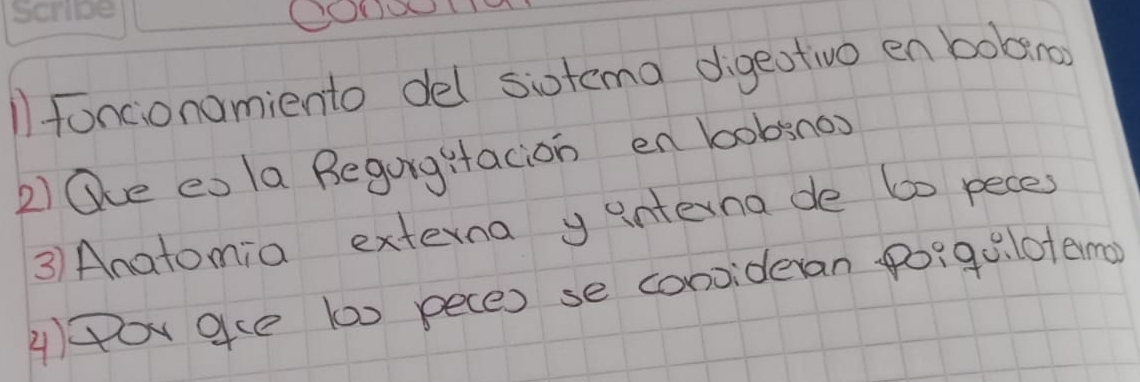 Scribe
1) Funcionamiento del sistema digestivo en bobinos
2) Que es la Regurgitación en bobinos
3) Anatomia externa y interna de los peces
4) Por que los peces se consideran poiquilotermos